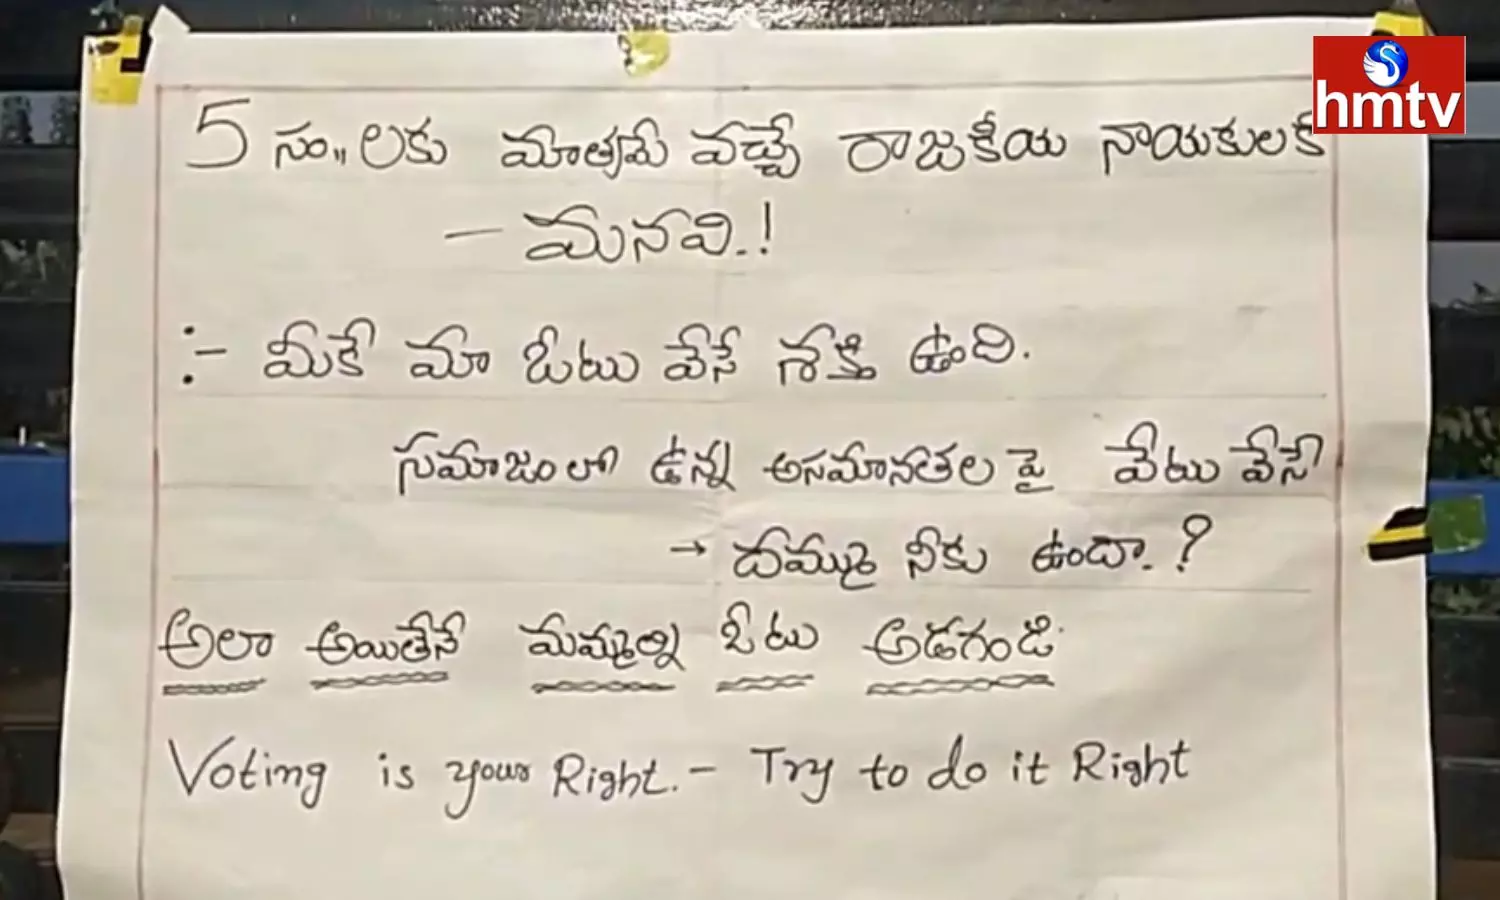 hmtv
5 సం,, లకు మాత్రమే వచ్చే రాజకీయ నాయకులకి
- మనవి.!
:- మీకే మా ఓటు వేసే శక్తి ఉంది.
సమాజంలో ఉన్న అసమానతల పై వేటు వేసే
→ దమ్ము నీకు ఉందా.?
అలా అయితేనే మమ్మల్ని ఓటు అడగండి.
Voting is your Right. - Try to do it Right